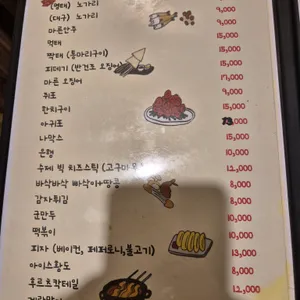 (명태) 노가리 9,000
(대구) 노가리 9,000
마른안주 15,000
먹태 15,000
짝태 (통마리구이) 15,000
피데기 (반건조 오징어) 15,000
마른 오징어
쥐포 9,000
한치구이 15,000
아귀포
나막스 15,000
은행 10,000
수제 빅 치즈스틱 (고구마 12,000
바삭바삭 빠삭이+땅콩 8,000
감자튀김 10,000
군만두 8,000
떡볶이 10,000
피자 (베이컨, 페퍼로니,불고기) 13,000
아이스황도 8,000
후르츠칵테일 8,000
12,000